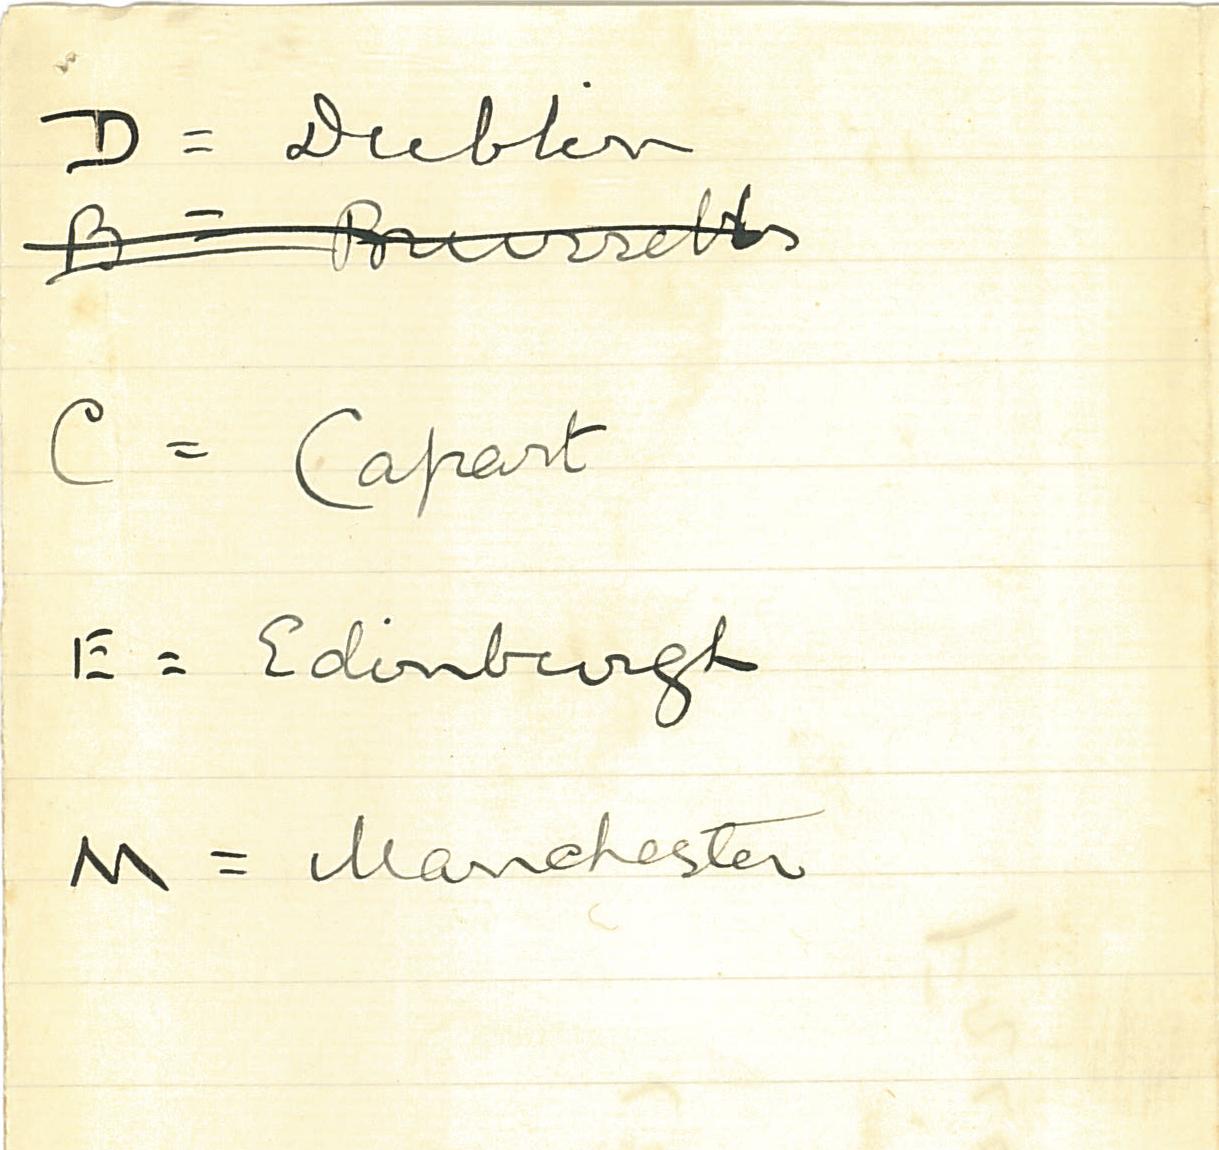 D = Dublin
B = Brussells
C = Capart
E = Edinburgh
M = Manchester